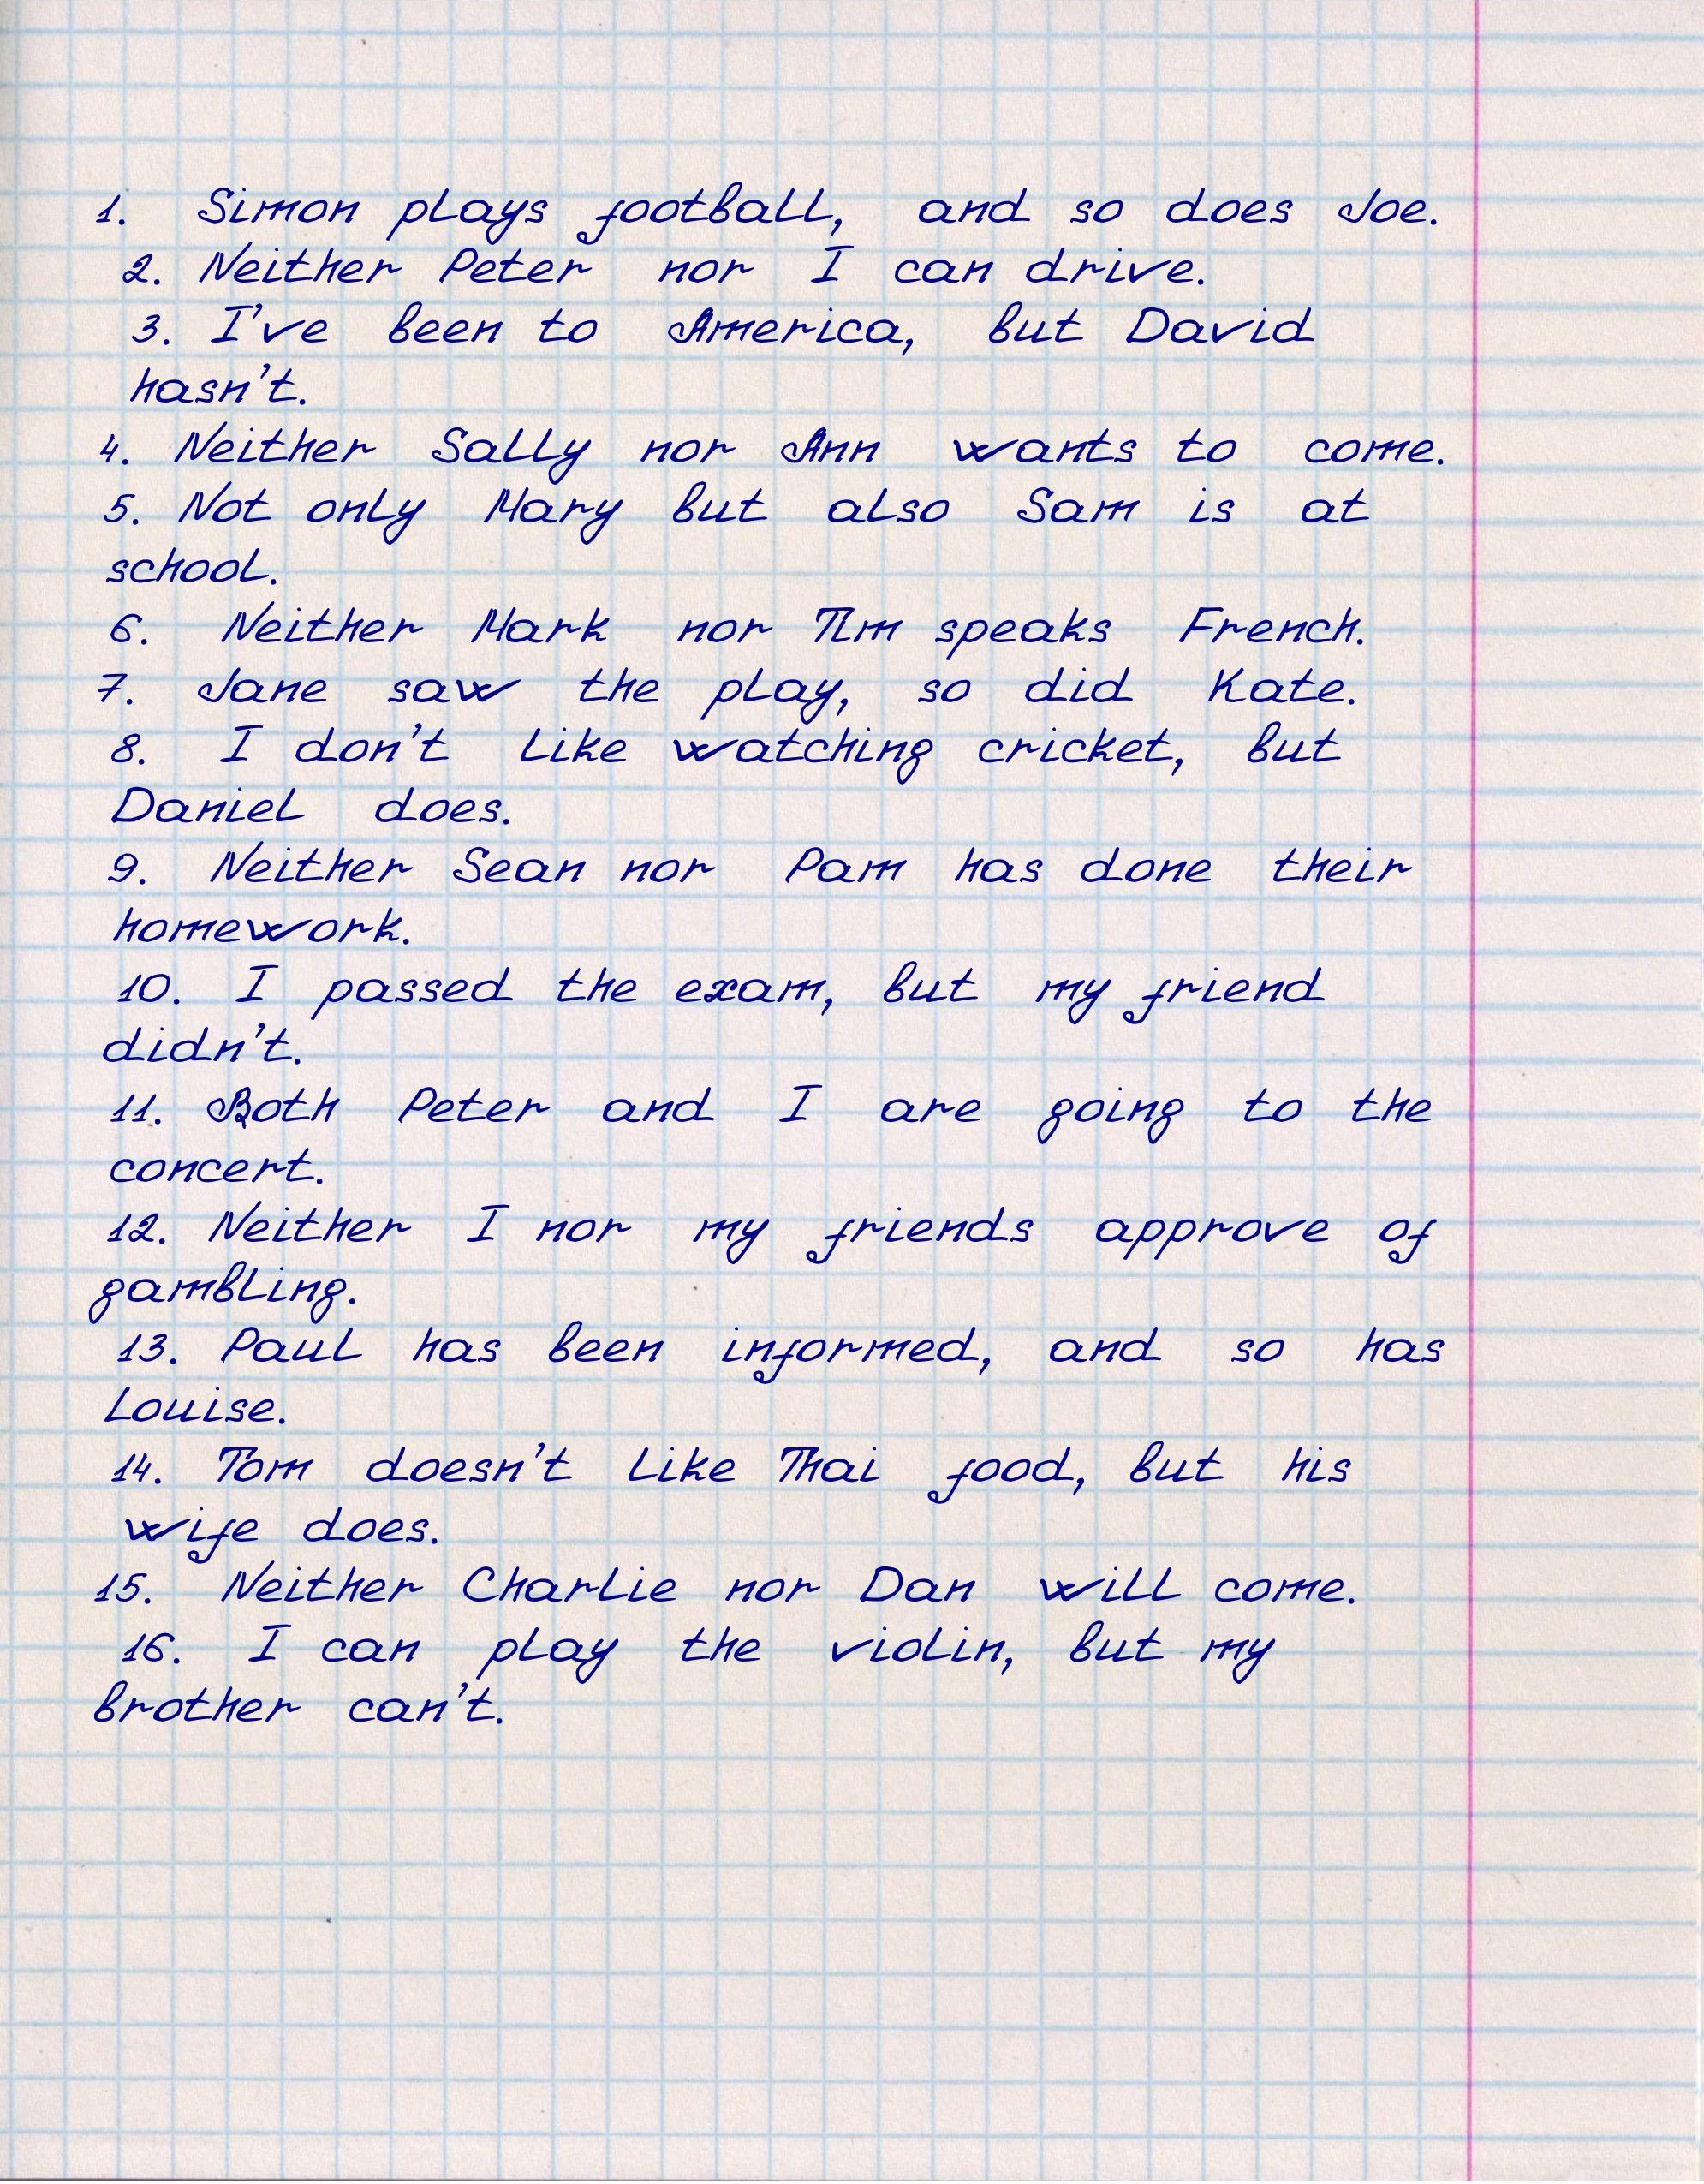 1. Simon plays football, and so does Joe.
2. Neither Peter nor I can drive.
3. I've been to America, but David
hasn't.
4. Neither Sally nor Ann wants to come.
5. Not only Mary but also Sam is at
school.
6. Neither Mark nor Tim speaks French.
7. Jane saw the play, so did Kate.
8. I don't like watching cricket, but
Daniel does.
9. Neither Sean nor Pam has done their
homework.
10. I passed the exam, but my friend
didn't.
11. Both Peter and I are going to the
concert.
12. Neither I nor my friends approve of
gambling.
13. Paul has been informed, and so has
Louise.
14. Tom doesn't like Thai food, but his
wife does.
15. Neither Charlie nor Dan will come.
16. I can play the violin, but my
brother can't.